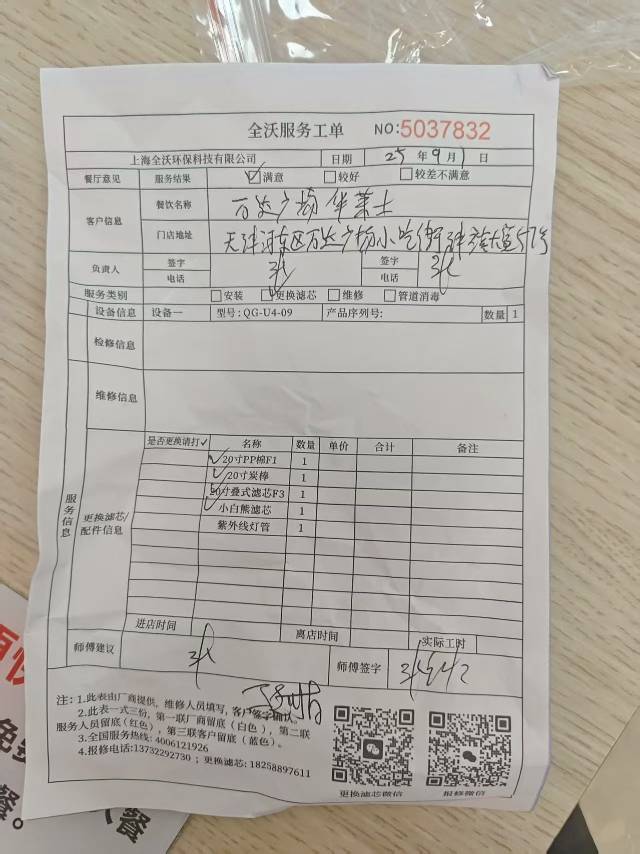 全沃服务工单 NO:5037832
上海全沃环保科技有限公司 日期 25年9月1日
餐厅意见 服务结果 ☑满意 □较好 □较差不满意
客户信息 餐饮名称 万达广场华莱士
门店地址 天津河东区万达广场小吃街 57号
负责人 签字 签字
电话 电话
服务类别 □安装 □更换滤芯 □维修 □管道消毒
设备信息 设备一 型号:QG-U4-09 产品序列号: 数量 1
检修信息
维修信息
服务信息
更换滤芯/配件信息
是否更换请打✓ 名称 数量 单价 合计 备注
✓ 20寸PP棉F1 1
✓ 20寸炭棒 1
✓ 20寸叠式滤芯F3 1
✓ 小白熊滤芯 1
紫外线灯管 1
进店时间 离店时间 实际工时
师傅建议 师傅签字
注：1.此表由厂商提供，维修人员填写，客户签字确认。
2.此表一式三份，第一联厂商留底（白色），第二联
服务人员留底(红色)，第三联客户留底（蓝色）。
3.全国服务热线: 4006121926
4.报修电话:13732292730；更换滤芯: 18258897611
更换滤芯微信 报修微信
免
餐。
餐